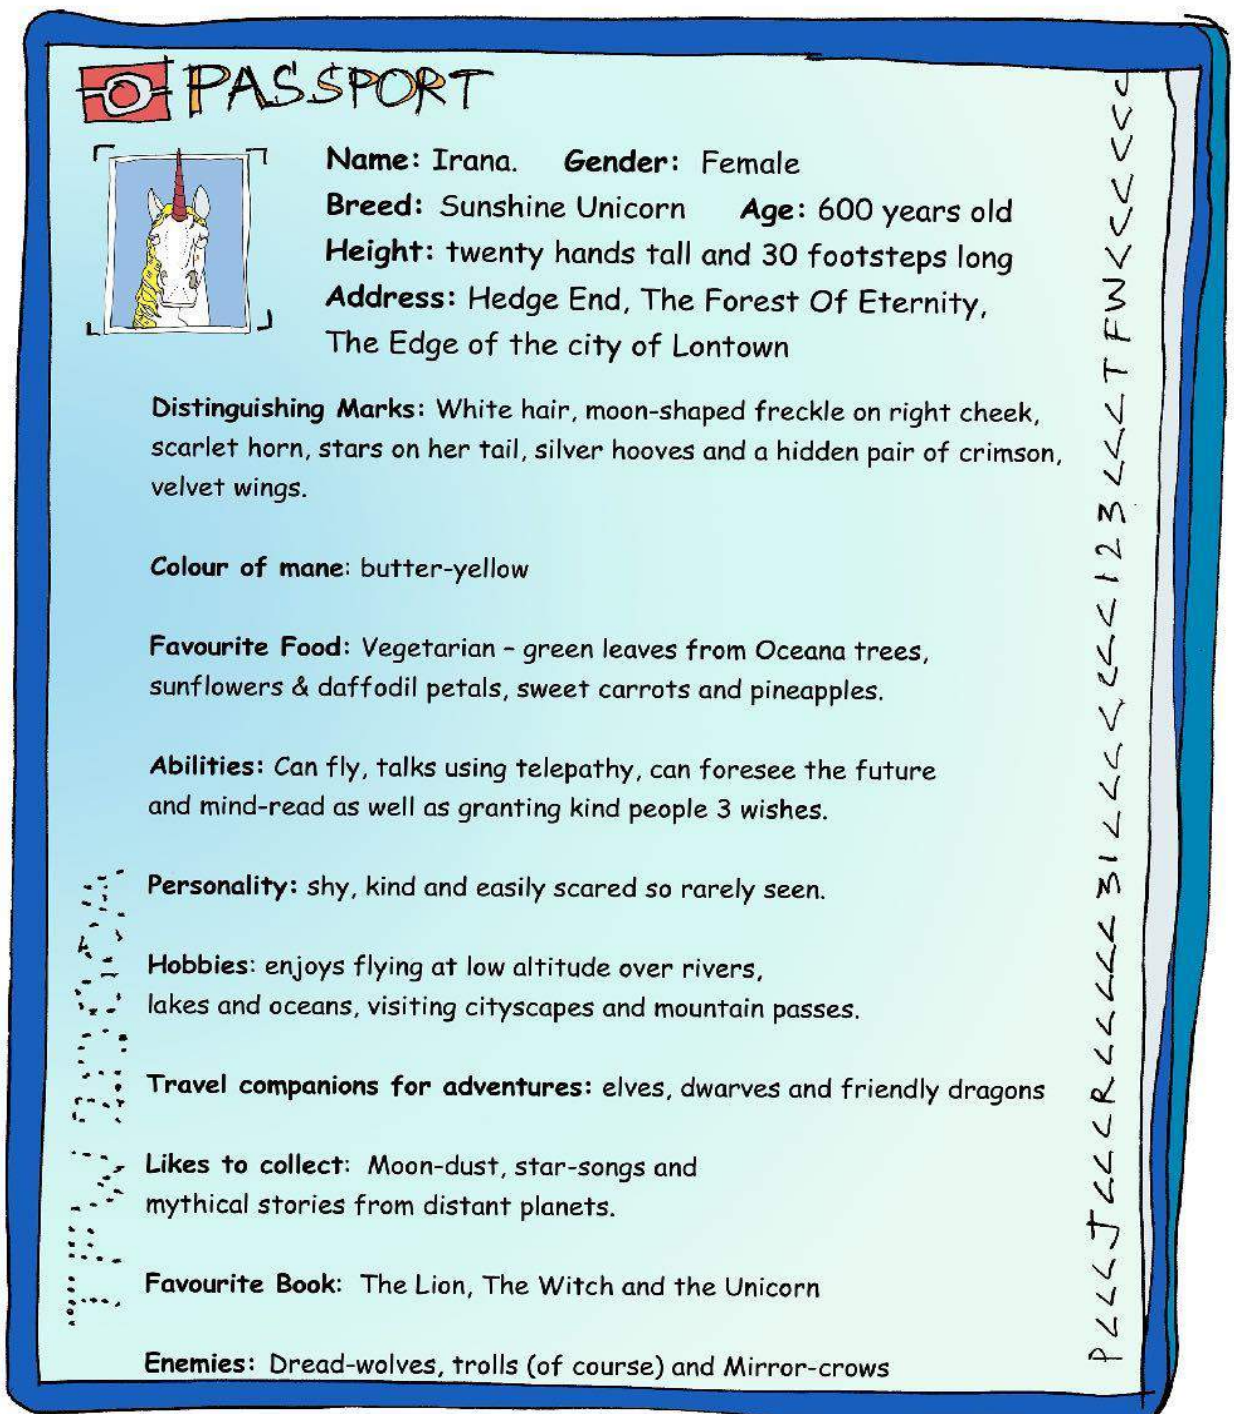 PASSPORT
Name: Irana. Gender: Female
Breed: Sunshine Unicorn Age: 600 years old
Height: twenty hands tall and 30 footsteps long
Address: Hedge End, The Forest Of Eternity,
The Edge of the city of Lontown
Distinguishing Marks: White hair, moon-shaped freckle on right cheek,
scarlet horn, stars on her tail, silver hooves and a hidden pair of crimson,
velvet wings.
Colour of mane: butter-yellow
Favourite Food: Vegetarian – green leaves from Oceana trees,
sunflowers & daffodil petals, sweet carrots and pineapples.
Abilities: Can fly, talks using telepathy, can foresee the future
and mind-read as well as granting kind people 3 wishes.
Personality: shy, kind and easily scared so rarely seen.
Hobbies: enjoys flying at low altitude over rivers,
lakes and oceans, visiting cityscapes and mountain passes.
Travel companions for adventures: elves, dwarves and friendly dragons
Likes to collect: Moon-dust, star-songs and
mythical stories from distant planets.
Favourite Book: The Lion, The Witch and the Unicorn
Enemies: Dread-wolves, trolls (of course) and Mirror-crows
P<<<J<<<R<<<<<31<<<<<<<123<<<TFW<<<<<<